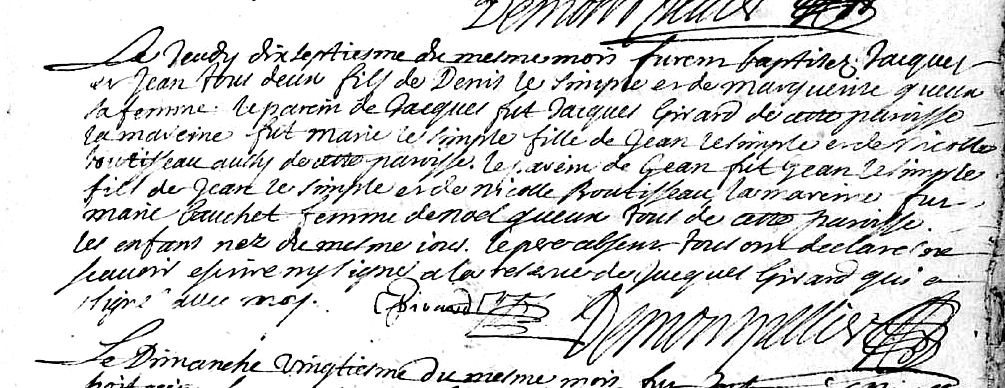 Demonpellier
Le Jeudy dixseptiesme du mesme mois furent baptisez Jacques
et Jean tous deux fils de Denis le simple et de marguerite queux
sa femme. le parein de Jacques fut Jacques Girard de cette paroisse
la mareine fut marie le simple fille de Jean le simple et de Nicolle
Boutisseau aussy de cette paroisse. le parein de Jean fut Jean le simple
fils de Jean le simple et de Nicolle Boutisseau la mareine fut
marie Couchet femme de noel queux tous de cette paroisse.
les enfans nez du mesme jour. le pere absent tous ont declaré ne
scavoir escrire ny signer a la reserve de Jacques Girard qui a
signé avec moy. Girard Demonpellier
Le Dimanche vingtiesme du mesme mois fut